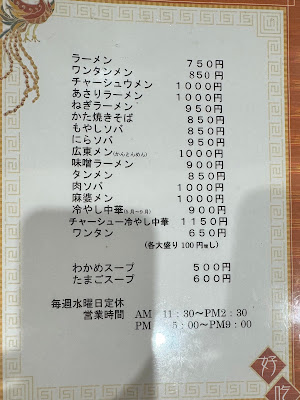 ラーメン 750円
ワンタンメン 850円
チャーシュウメン 1000円
あさりラーメン 1000円
ねぎラーメン 950円
かた焼きそば 850円
もやしソバ 850円
にらソバ 950円
広東メン(かんとんめん) 1000円
味噌ラーメン 900円
タンメン 850円
肉ソバ 1000円
麻婆メン 1000円
冷やし中華 900円
チャーシュー冷やし中華 1150円
ワンタン 650円
(各大盛り100円増し)
わかめスープ 500円
たまごスープ 600円
毎週水曜日定休
営業時間 AM 11:30〜PM2:30
PM 5:00〜PM9:00
好
吃